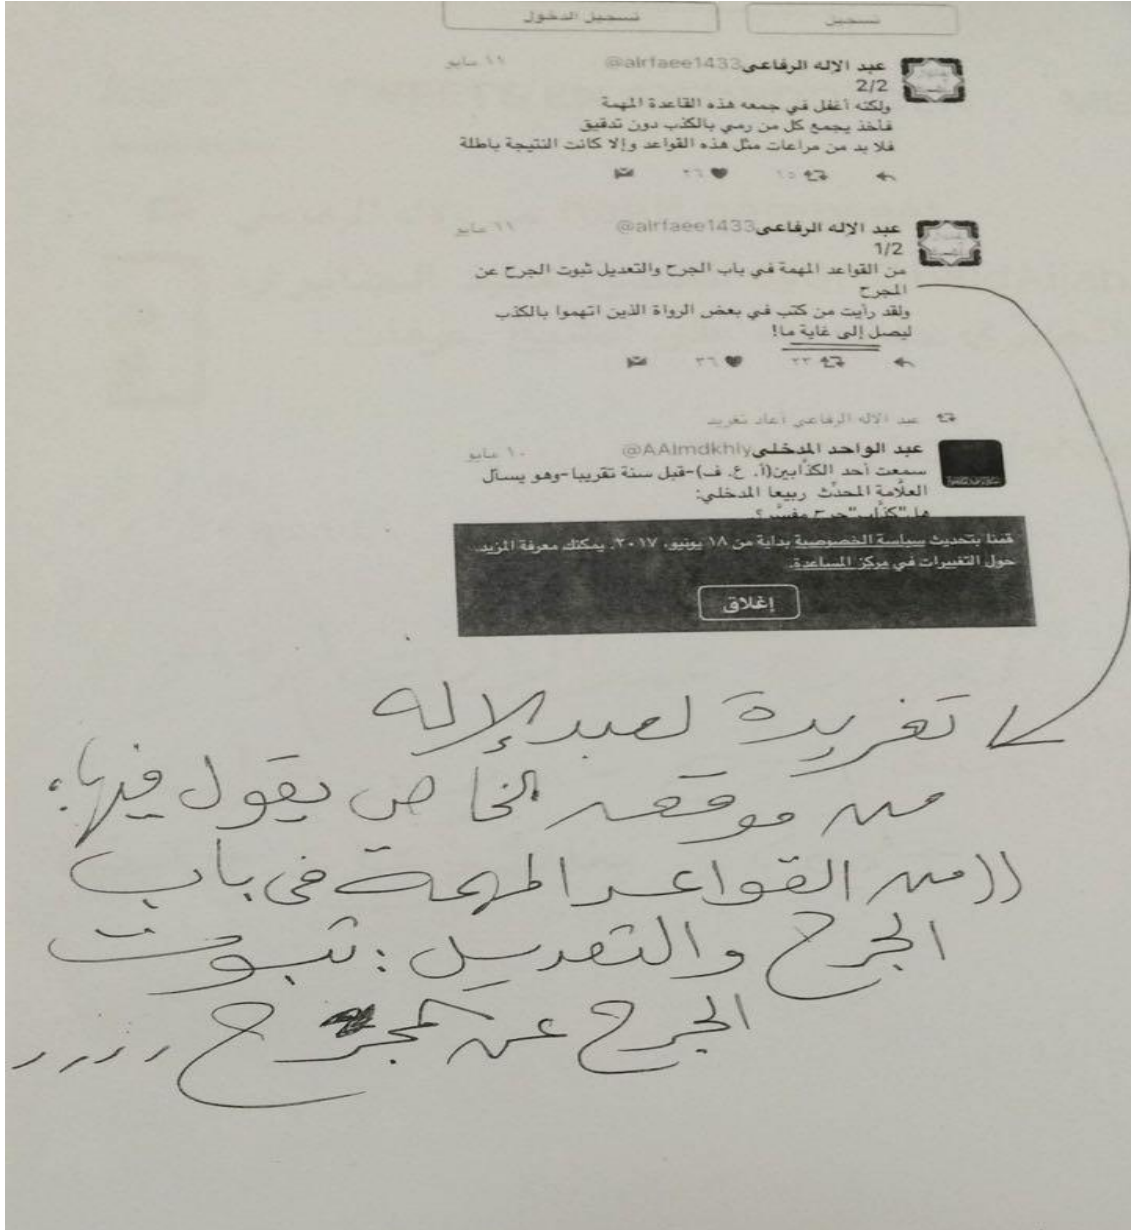 تسجيل تسجيل الدخول
عبد الإله الرفاعي @alrfaee1433 ١١ مايو
2/2
ولكنه أغفل في جمعه هذه القاعدة المهمة
فأخذ يجمع كل من رمي بالكذب دون تدقيق
فلا بد من مراعات مثل هذه القواعد وإلا كانت النتيجة باطلة
١٥ ٢٦
عبد الإله الرفاعي @alrfaee1433 ١١ مايو
1/2
من القواعد المهمة في باب الجرح والتعديل ثبوت الجرح عن
المجرح
ولقد رأيت من كتب في بعض الرواة الذين اتهموا بالكذب
ليصل إلى غاية ما!
٢٣ ٣٦
عبد الإله الرفاعي أعاد تغريد
عبد الواحد المدخلي @AAlmdkhly ١٠ مايو
سمعت أحد الكذَّابين(أ. ع. ف)-قبل سنة تقريبا-وهو يسأل
العلَّامة المحدِّث ربيعا المدخلي:
هل"كذَّاب"جرح مفسَّر؟
قمنا بتحديث سياسة الخصوصية بداية من ١٨ يونيو، ٢٠١٧. يمكنك معرفة المزيد..
حول التغييرات في مركز المساعدة.
إغلاق
تغريدة لعبد الإله
من موقعه الخاص يقول فيها:
((من القواعد المهمة في باب
الجرح والتعديل: ثبوت
الجرح عن المجرح ....